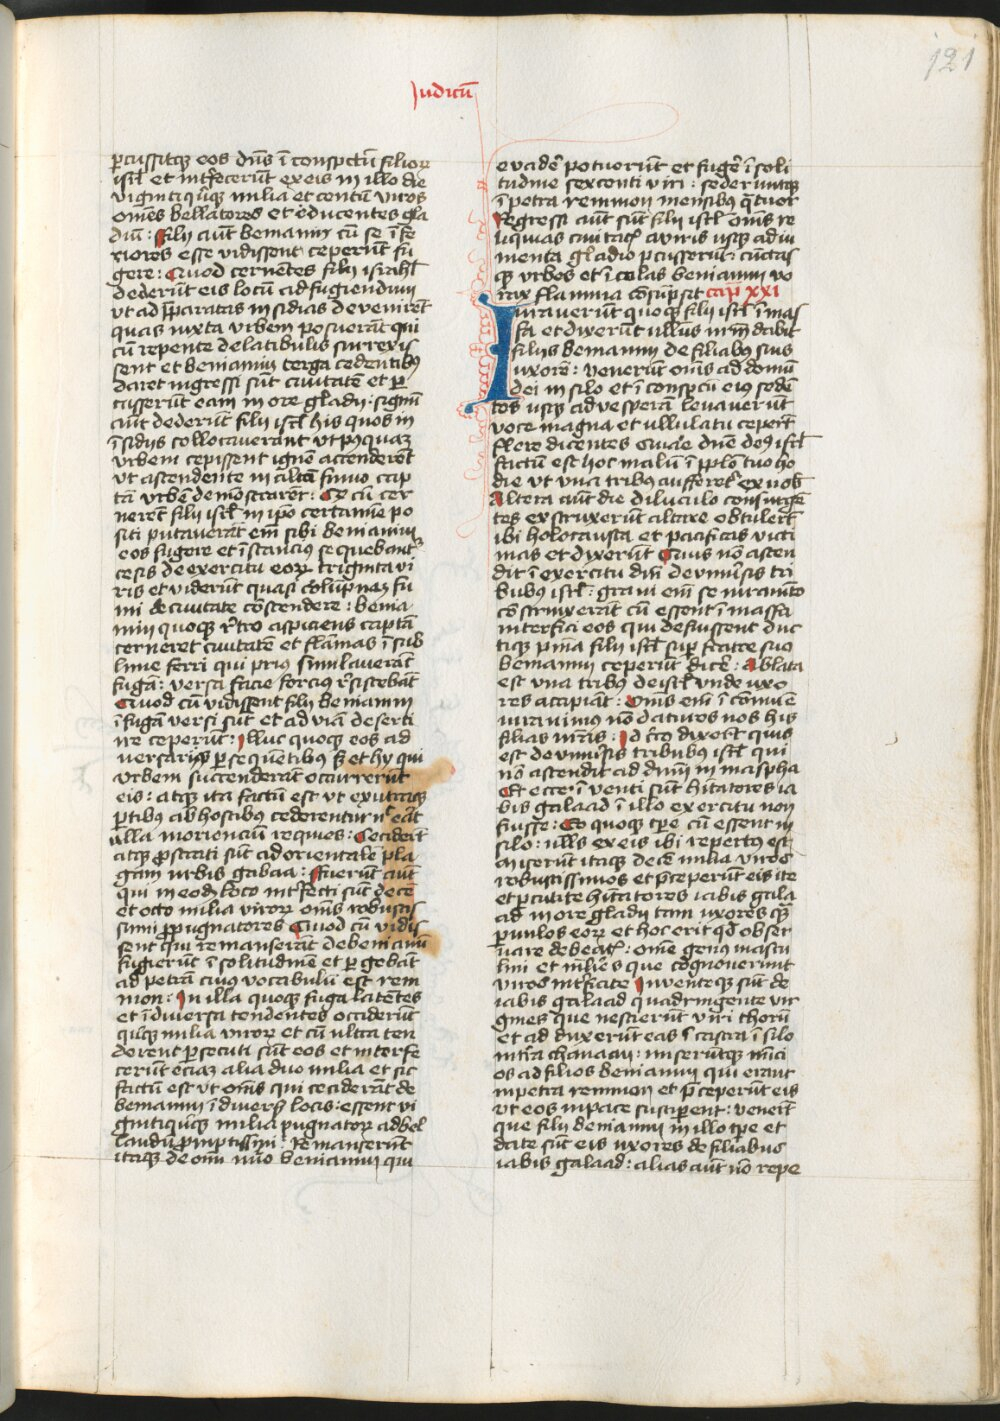 121
Judicū
ꝑcussitqꝫ eos dn̄s ī conspectū filioꝝ
isrl̄ et int̄fecerūt ex eis in illo die
viginti qn̄qꝫ milia et centū viros
omēs bellatores et educentes gla
diū: Filij aūt beniamin cū se īfe
riores esse vidissent ceperūt fu
gere: Quod cernētes filij israhl̄
dederūt eis locū ad fugiendum
ut ad p̄paratas insidias devenirēt
quas iuxta urbem posuerāt qui
cū repente de latibulis surrexis
sent et beniamin terga cedentibꝰ
daret ingressi sūt civitatē et ꝑ
cusserūt eam in ore gladij: signū
aūt dederūt filij isrl̄ his quos in
īsidijs collocaverant ut pꝰquaꝫ
urbem cepissent ignē accenderēt
ut ascendente in altū fumo cap
tā urbē demōstrarēt: Qꝫ cū cer
nerēt filij isrl̄ in ip̄o certamīe po
siti putaverāt em̄ sibi beniamin
eos fugere et īstanciꝰ sequebantᷣ
cesis de exercitu eoꝝ triginta vi
ris et viderūt quasi colūpnaꝫ fu
mi de civitate cōscendere: benia
min quoqꝫ rt̄ro aspiciens captā
cerneret civitatē et flāmas ī sub
lime ferri qui priꝰ simulaverāt
fugā: versa facie forciꝰ rͤsistebāt
Quod cū vidissent filij beniamin
ī fugā versi sūt et ad viā deserti
ire ceperūt: Illuc quoqꝫ eos ad
versarijs ꝑsequētibꝰ sꝫ et hij qui
urbem succenderāt occurrerūt
eis: atqꝫ ita factū est ut ex utraqꝫ
ꝑtibus ab hostibus cederentur nͨ erāt
ulla morienciū requies: Ceciderūt
atqꝫ ꝓstrati sūt ad orientalē pla
gam urbis gabaa: Fuerūt aūt
qui in eodē loco int̄fecti sūt decē
et octo milia viroꝝ om̄s robustis
simi ꝓpugnatores Quod cū vidis
sent qui remanserāt de beniamin
fugierūt ī solitudinē et ꝑgebāt
ad petrā cuiꝰ vocabulū est rem
mon: In illa quoqꝫ fuga latentes
et ī diversa tendentes occiderūt
qn̄qꝫ milia viroꝝ et cū ultra ten
derent ꝑsecuti sūt eos et interfe
cerūt eciaꝫ alia duo milia et sic
factū est ut om̄s qui ceciderāt de
beniamin ī diversꝭ locis: essent vi
gintiqn̄qꝫ milia pugnatoꝝ ad bel
landū ꝓmptissimi: Remanserūt
itaqꝫ de om̄i nūo beniamin qui
evadēr potuerūt et fugēr ī soli
tudine sexcenti viri: sederuntqꝫ
ī petra remmon mensibus q̄tuor
Regressi aūt sūt filij isrl̄ om̄s re
liquias civitatꝭ a viris usqꝫ ad iu
menta gladio ꝑcusserūt: cūctas
qꝫ urbes et ī colas beniamin vo
rax flamma cōsūpsit cap̄ XXI
Iuraverūt quoqꝫ filij isrl̄ ī mas
fa et dixerūt ullus nr̄m dabit
filijs beniamin de filiabꝰ suis
uxorē: venerūt om̄s ad domū
dei in silo et ī conspectu eiꝰ seden
tes usqꝫ ad vesperā levaverūt
voce magna et ullulatu ceperūt
flere dicentes Quare dn̄e deꝰ isrl̄
factū est hoc malū ī ppl̄o tuo ho
die ut una tribus aufferetᷣ ex nob̄
Altera aūt die diluculo consurgē
tes exstruxerūt altare obtulerūt
ibi holocausta et pacificas victi
mas et dixerūt Quis nō ascen
dit ī exercitu dn̄i de univ̄sis tri
bubus isrl̄: gravi em̄ se iuramēto
cōstruxerāt cū essent ī massa
interfici eos qui defuissent duc
tiqꝫ pn̄ia filij isrl̄ suꝑ fratre suo
beniamin ceperūt dicēr: Ablata
est una tribus de isrl̄ unde uxo
res accipiāt: Om̄s em̄ ī comūe
iuravimus nō daturos nos his
filias nr̄as: Id cͨo dixerūt quis
est de univ̄sis tribubus isrl̄ qui
nō ascendit ad dn̄m in maspha
Et ecce īventi sūt hītatores ia
bis galaad ī illo exercitu non
fuisse: Eo quoqꝫ tꝑe cū essent in
silo: ullꝰs ex eis ibi repertꝰ est
Miserūt itaqꝫ decē milia viros
robustissimos et p̄ceperūt eis ite
et ꝑcutite hītatores iabis gala
ad in ore gladij tam uxores qꝫ
ꝑvulos eoꝝ et hoc erit qd̄ obser
vare debeatꝭ: om̄e genus mascu
lini et mulieꝝ que cognoverūt
viros int̄ficite Inventeqꝫ sūt de
iabis galaad quadringente vir
gines que nescierūt viri thorū
et adduxerūt eas ī castra ī silo
in trā chanaan: miserūtqꝫ nūci
os ad filios beniamin qui erant
in petra remmon et p̄ceperūt eis
ut eos in pace susciꝑent: venerūt
que filij beniamin in illo tꝑe et
date sūt eis uxores de filiabus
iabis galaad: alias aūt nō repe